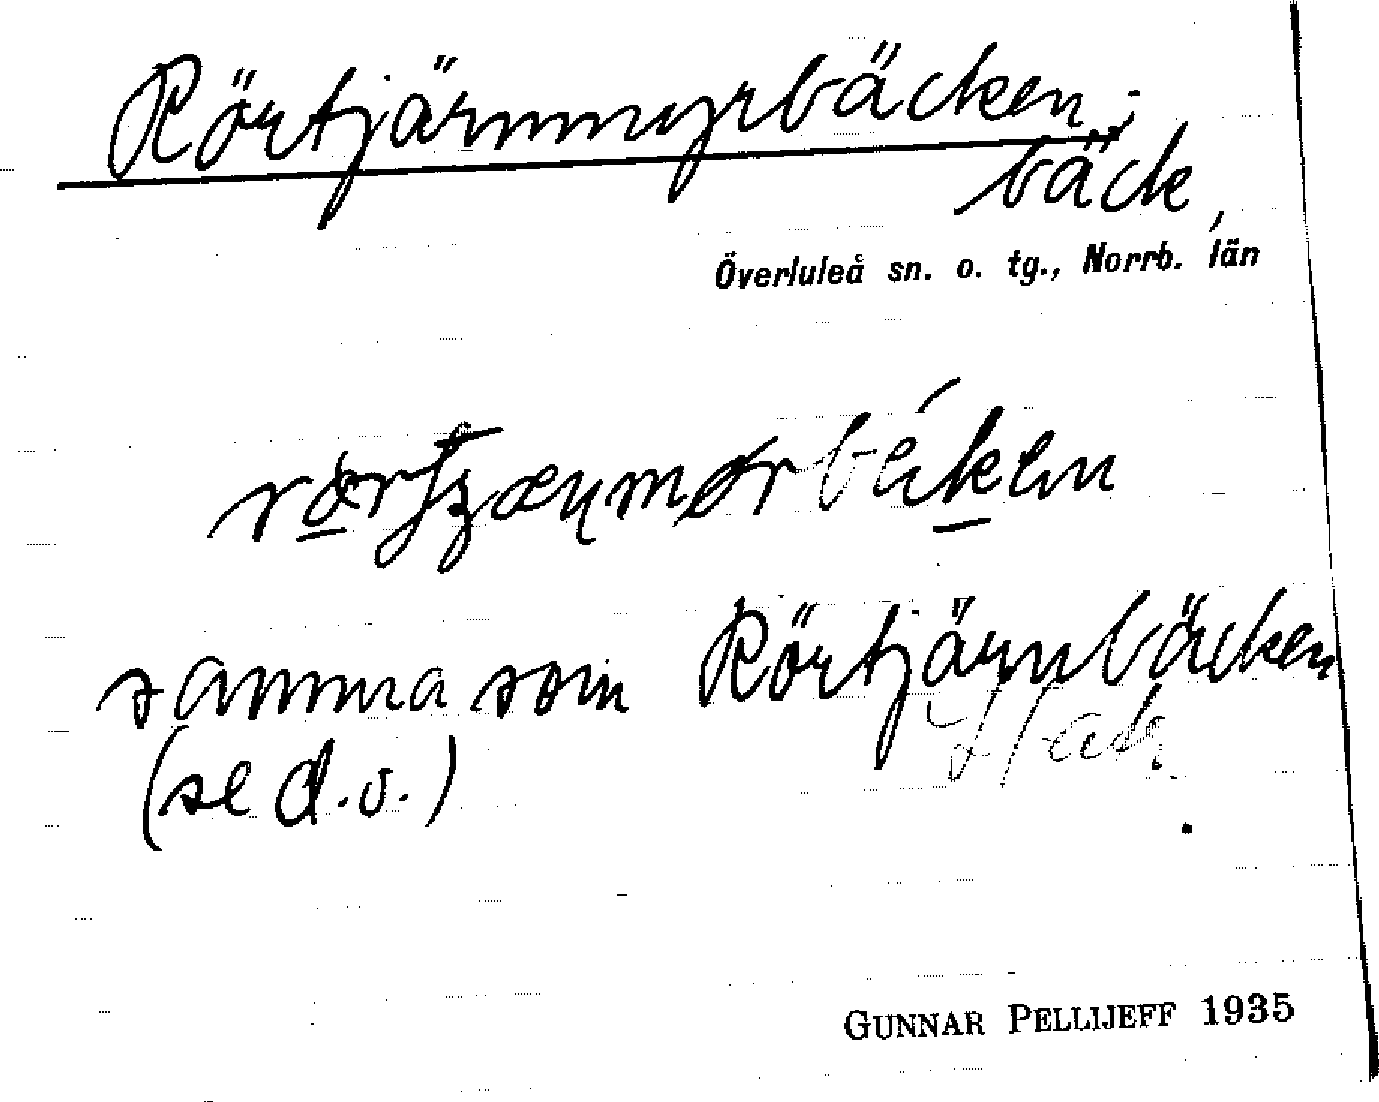 Rörtjärnmyrbäcken;
bäck,
Överluleå sn. o. tg., Norrb. län
samma som Rörtjärnbäcken
(se d.o.)
GUNNAR PELLIJEFF 1935